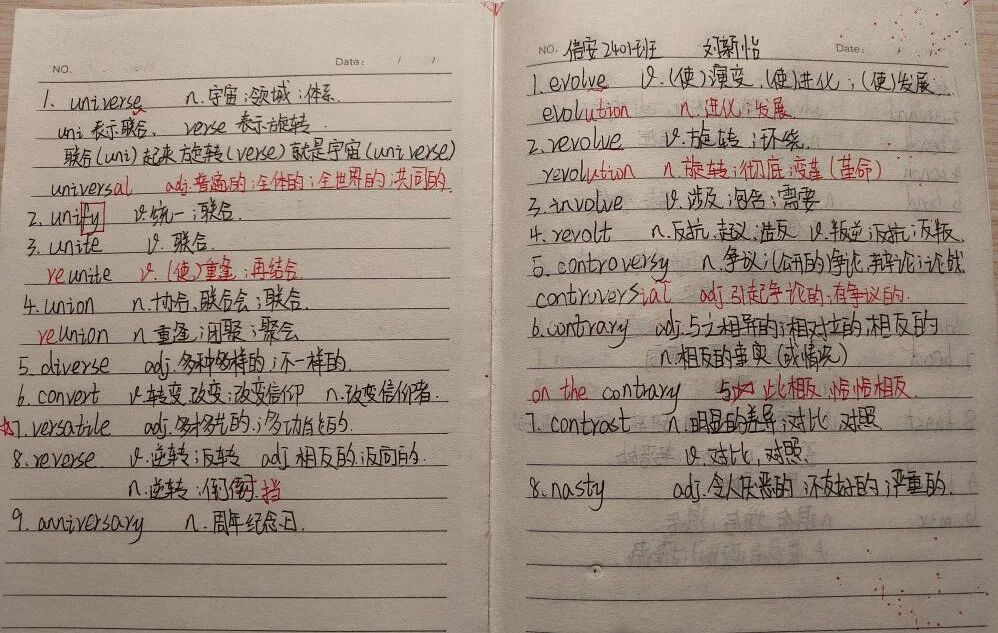 NO.
Date: / /
1. universe n.宇宙;领域;体系.
uni 表示联合, verse 表示旋转.
联合(uni)起来旋转(verse)就是宇宙(universe)
universal adj.普遍的;全体的;全世界的;共同的.
2. unify v.统一;联合.
3. unite v.联合.
reunite v.(使)重逢;再结合
4. union n.协会,联合会;联合.
reunion n.重逢;团聚;聚会
5. diverse adj.多种多样的;不一样的.
6. convert v.转变,改变;改变信仰 n.改变信仰者.
7. versatile adj.多才多艺的;多功能的.
8. reverse v.逆转;反转 adj.相反的;反向的.
n.逆转;倒挡
9. anniversary n.周年纪念日.
NO. 信安2401班 刘新怡
Date: / /
1. evolve v.(使)演变,(使)进化;(使)发展.
evolution n.进化;发展
2. revolve v.旋转;环绕.
revolution n.旋转;彻底变革(革命)
3. involve v.涉及;包含;需要
4. revolt n.反抗,起义,造反 v.叛逆;反抗;反叛.
5. controversy n.争议;(公开的)争论,辩论;论战
controversial adj.引起争论的;有争议的.
6. contrary adj.与之相异的;相对立的,相反的
n.相反的事实(或情况)
on the contrary 与此相反,恰恰相反.
7. contrast n.明显的差异;对比,对照
v.对比,对照
8. nasty adj.令人厌恶的;不友好的;严重的.